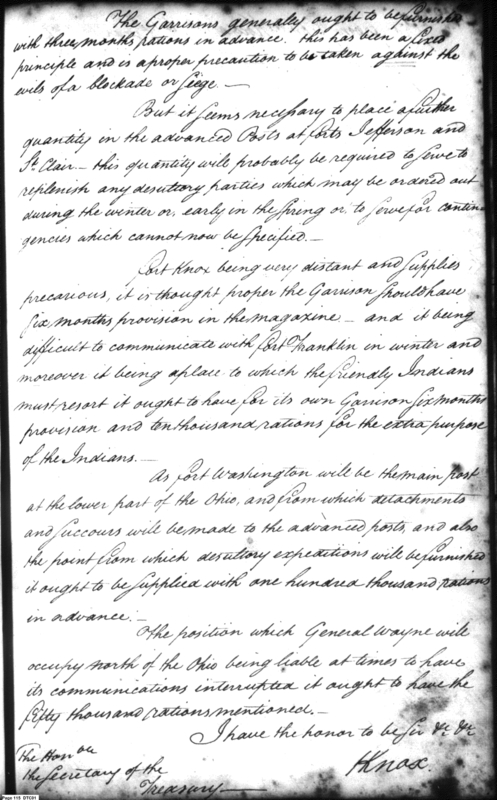 The Garrisons generally ought to be furnished
with three months rations in advance. this has been a fixed
principle and is a proper precaution to be taken against the
evils of a blockade or siege. —
But it seems necessary to place a further
quantity in the advanced Posts at forts Jefferson and
St Clair — this quantity will probably be required to serve to
replenish any desultory parties which may be ordered out
during the winter or, early in the spring or, to serve for contin
gencies which cannot now be specified. —
Fort Knox being very distant and supplies
precarious, it is thought proper the Garrison should have
six months provision in the magazine — and it being
difficult to communicate with fort Franklin in winter and
moreover it being a place to which the friendly Indians
must resort it ought to have for its own Garrison six months
provision and ten thousand rations for the extra purpose
of the Indians. —
As fort Washington will be the main post
at the lower part of the Ohio, and from which detachments
and succours will be made to the advanced posts, and also
the point from which desultory expeditions will be furnished
it ought to be supplied with one hundred thousand rations
in advance. —
The position which General Wayne will
occupy north of the Ohio being liable at times to have
its communications interrupted it ought to have the
fifty thousand rations mentioned. —
I have the honor to be Sir &c &c
HKnox.
The Honble
the Secretary of the
Treasury —
Page 115 DTC01